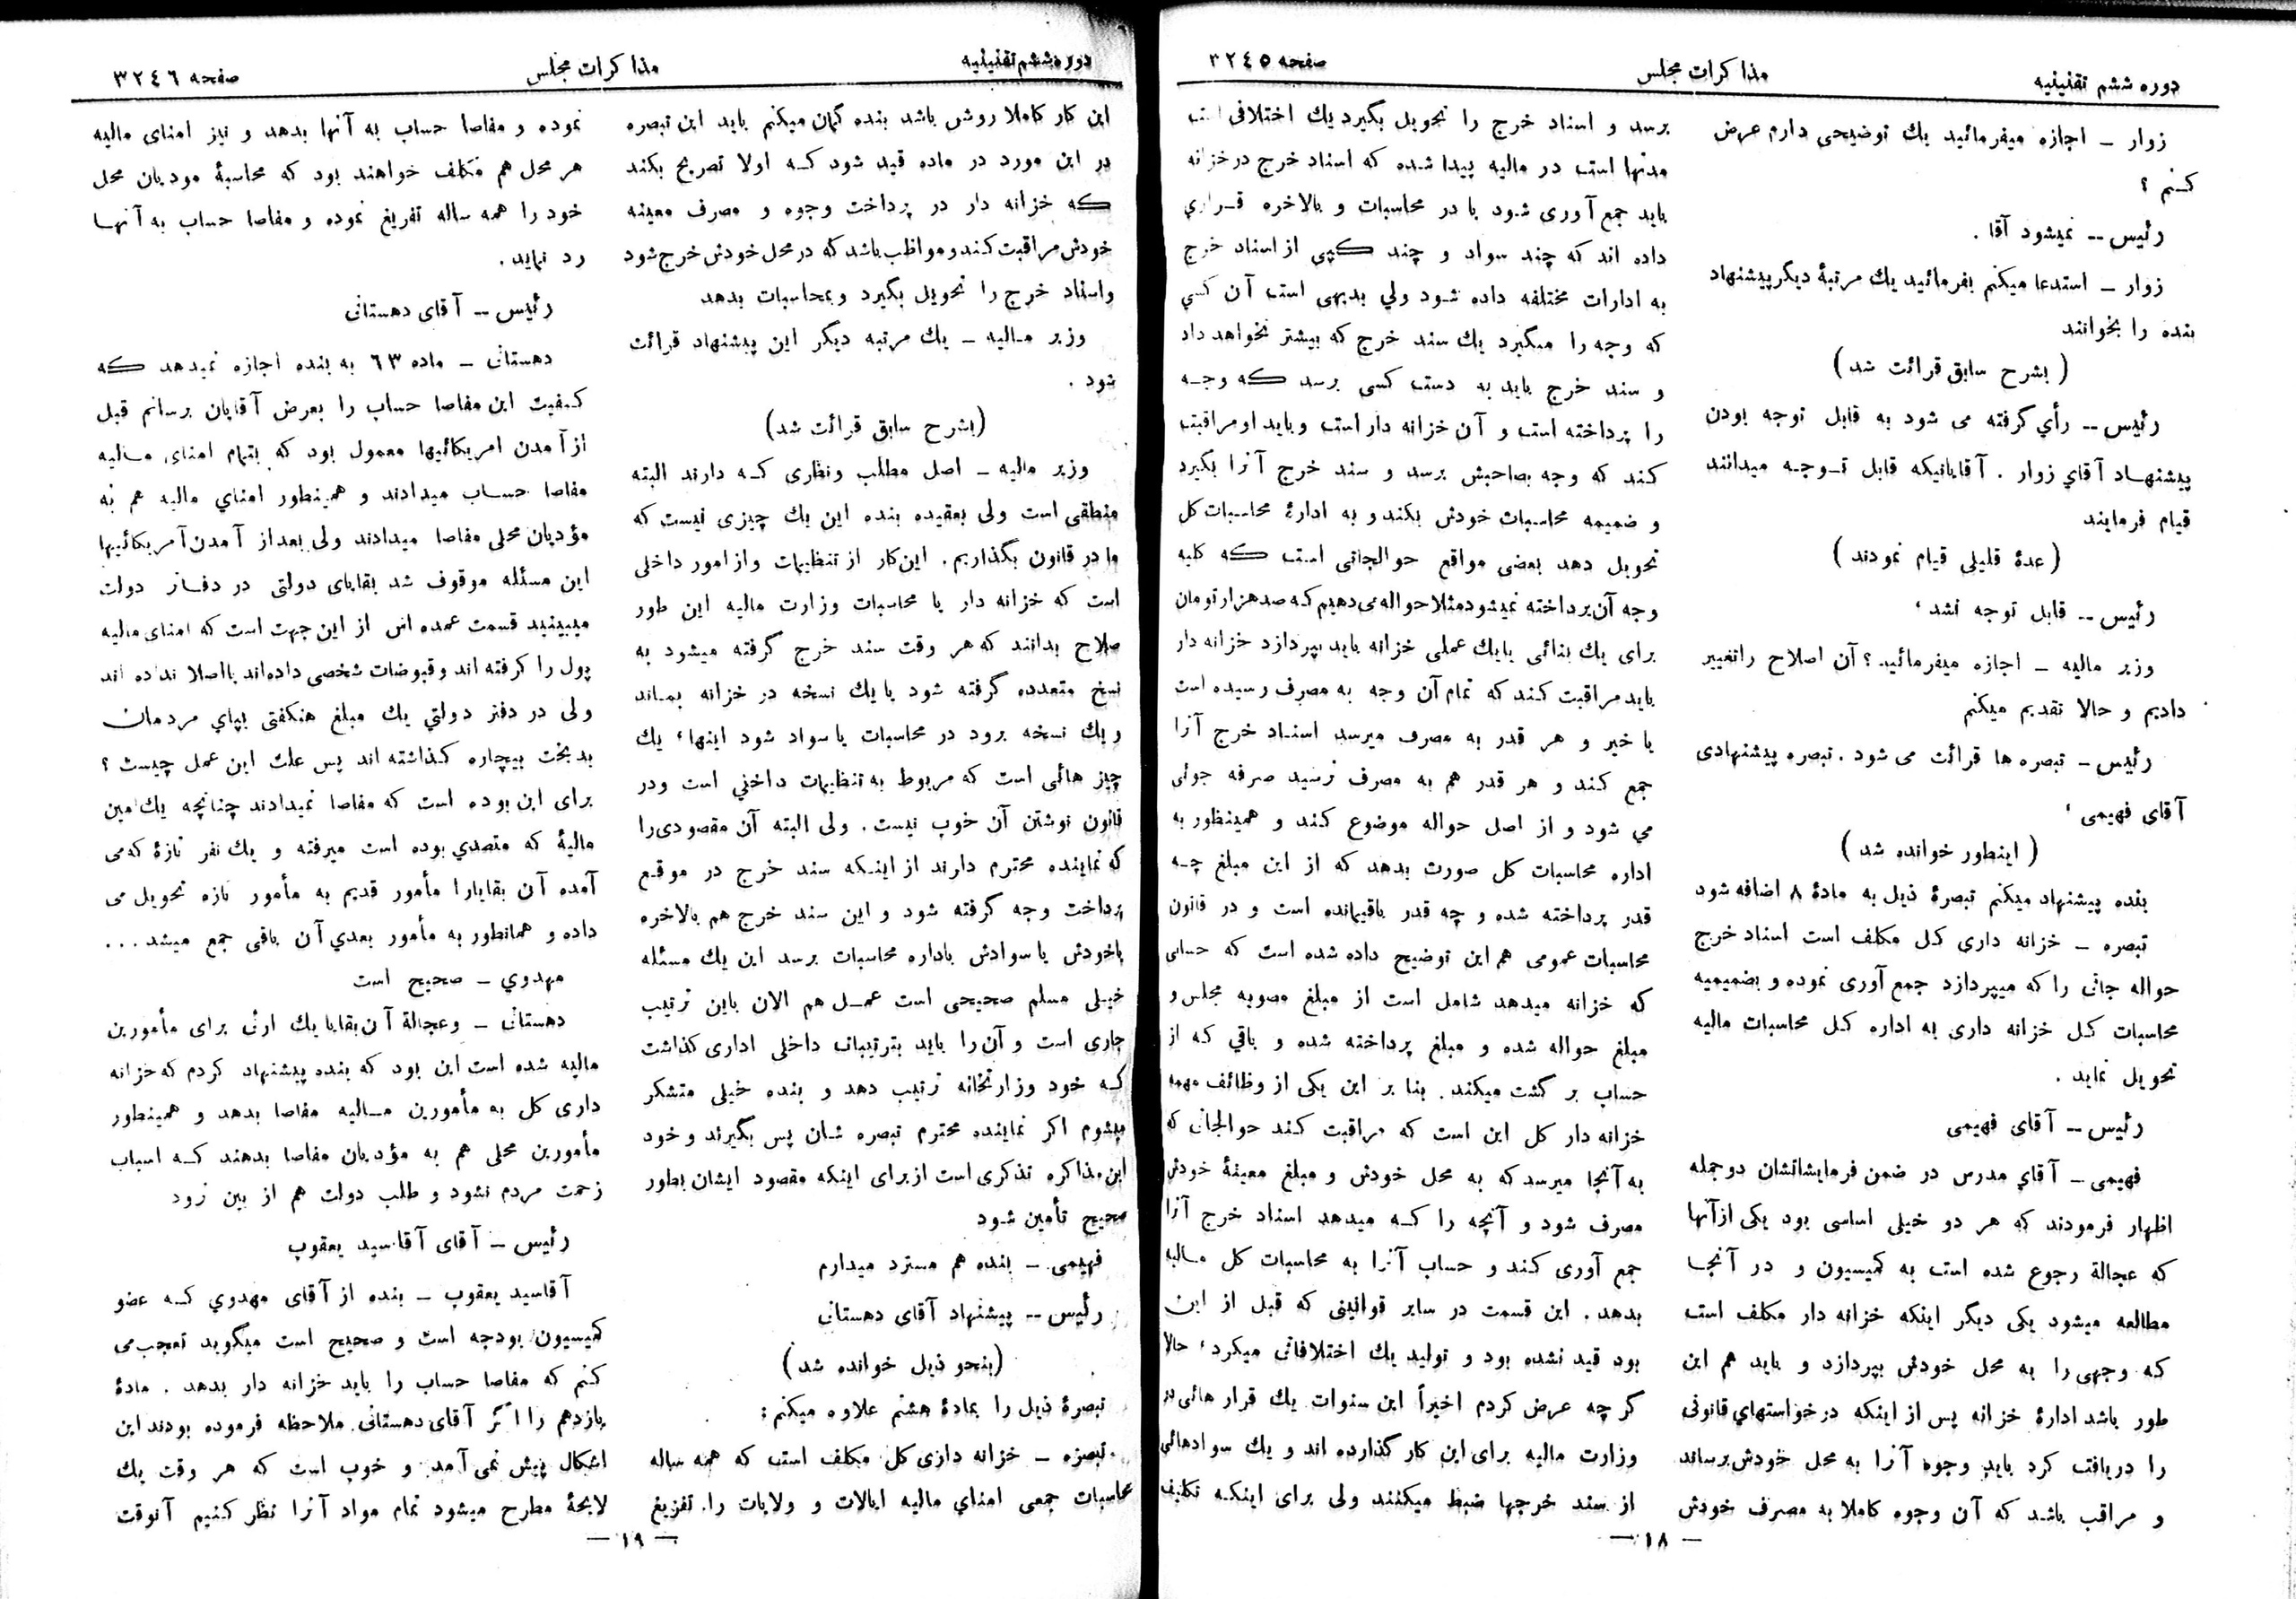 دوره ششم تقنینیه
مذاکرات مجلس
صفحه ۳۲٤٥
زوار ـ اجازه میفرمائید یك توضیحی دارم عرض
کنم ؟
رئیس -- نمیشود آقا .
زوار ـ استدعا میکنم بفرمائید یك مرتبۀ دیگر پیشنهاد
بنده را بخوانند
( بشرح سابق قرائت شد )
رئیس -- رأی گرفته می شود به قابل توجه بودن
پیشنهاد آقای زوار . آقایانیکه قابل توجه میدانند
قیام فرمایند
( عدۀ قلیلی قیام نمودند )
رئیس -- قابل توجه نشد ،
وزیر مالیه ـ اجازه میفرمائید ؟ آن اصلاح را تغییر
دادیم و حالا تقدیم میکنم
رئیس - تبصره ها قرائت می شود . تبصره پیشنهادی
آقای فهیمی ،
( اینطور خوانده شد )
بنده پیشنهاد میکنم تبصرۀ ذیل به مادۀ ۸ اضافه شود
تبصره ـ خزانه داری کل مکلف است اسناد خرج
حواله جاتی را که میپردازد جمع آوری نموده و بضمیمه
محاسبات کل خزانه داری به اداره کل محاسبات مالیه
تحویل نماید .
رئیس -- آقای فهیمی
فهیمی ـ آقای مدرس در ضمن فرمایشاتشان دو جمله
اظهار فرمودند که هر دو خیلی اساسی بود یکی از آنها
که عجالة رجوع شده است به کمیسیون و در آنجا
مطالعه میشود یکی دیگر اینکه خزانه دار مکلف است
که وجهی را به محل خودش بپردازد و باید هم این
طور باشد ادارۀ خزانه پس از اینکه درخواستهای قانونی
را دریافت کرد باید وجوه آنرا به محل خودش برساند
و مراقب باشد که آن وجوه کاملا به مصرف خودش
برسد و اسناد خرج را تحویل بگیرد یك اختلافی است
مدتها است در مالیه پیدا شده که اسناد خرج در خزانه
باید جمع آوری شود یا در محاسبات و بالاخره قراری
داده اند که چند سواد و چند کپی از اسناد خرج
به ادارات مختلفه داده شود ولی بدیهی است آن کسی
که وجه را میگیرد یك سند خرج که بیشتر نخواهد داد
و سند خرج باید به دست کسی برسد که وجه
را پرداخته است و آن خزانه دار است و باید او مراقبت
کند که وجه بصاحبش برسد و سند خرج آنرا بگیرد
و ضمیمه محاسبات خودش بکند و به ادارۀ محاسبات کل
تحویل دهد بعضی مواقع حوالجاتی است که کلیه
وجه آن پرداخته نمیشود مثلا حواله می دهیم که صد هزار تومان
برای یك بنائی یا یك عملی خزانه باید بپردازد خزانه دار
باید مراقبت کند که تمام آن وجه به مصرف رسیده است
یا خیر و هر قدر به مصرف میرسد اسناد خرج آنرا
جمع کند و هر قدر هم به مصرف نرسید صرفه جوئی
می شود و از اصل حواله موضوع کند و همینطور به
اداره محاسبات کل صورت بدهد که از این مبلغ چه
قدر پرداخته شده و چه قدر باقیمانده است و در قانون
محاسبات عمومی هم این توضیح داده شده است که حسابی
که خزانه میدهد شامل است از مبلغ مصوبه مجلس و
مبلغ حواله شده و مبلغ پرداخته شده و باقی که از
حساب بر گشت میکند . بنا بر این یکی از وظائف مهمۀ
خزانه دار کل این است که مراقبت کند حوالجاتی که
به آنجا میرسد که به محل خودش و مبلغ معینۀ خودش
مصرف شود و آنچه را که میدهد اسناد خرج آنرا
جمع آوری کند و حساب آنرا به محاسبات کل مالیه
بدهد . این قسمت در سایر قوانینی که قبل از این
بود قید نشده بود و تولید یك اختلافاتی میکرد ، حالا
گر چه عرض کردم اخیراً این سنوات یك قرار هائی در
وزارت مالیه برای این کار گذارده اند و یك سوادهائی
از سند خرجها ضبط میکنند ولی برای اینکه تکلیف
— ۱۸ —
دوره ششم تقنینیه
مذاکرات مجلس
صفحه ۳۲٤٦
این کار کاملا روشن باشد بنده گمان میکنم باید این تبصره
در این مورد در ماده قید شود که اولا تصریح بکند
که خزانه دار در پرداخت وجوه و مصرف معینه
خودش مراقبت کند و مواظب باشد که در محل خودش خرج شود
و اسناد خرج را تحویل بگیرد و بمحاسبات بدهد
وزیر مالیه ـ یك مرتبه دیگر این پیشنهاد قرائت
شود .
(بشرح سابق قرائت شد)
وزیر مالیه ـ اصل مطلب و نظری که دارند البته
منطقی است ولی بعقیده بنده این یك چیزی نیست که
ما در قانون بگذاریم . این کار از تنظیمات و از امور داخلی
است که خزانه دار یا محاسبات وزارت مالیه این طور
صلاح بدانند که هر وقت سند خرج گرفته میشود به
نسخ متعدده گرفته شود یا یك نسخه در خزانه بماند
و یك نسخه برود در محاسبات یا سواد شود اینها ، یك
چیز هائی است که مربوط به تنظیمات داخلی است و در
قانون نوشتن آن خوب نیست . ولی البته آن مقصودی را
که نماینده محترم دارند از اینکه سند خرج در موقع
پرداخت وجه گرفته شود و این سند خرج هم بالاخره
یا خودش یا سوادش باداره محاسبات برسد این یك مسئله
خیلی مسلم صحیحی است عمل هم الان باین ترتیب
جاری است و آن را باید بترتیبات داخلی اداری گذاشت
که خود وزارتخانه ترتیب دهد و بنده خیلی متشکر
میشوم اگر نماینده محترم تبصره شان پس بگیرند و خود
این مذاکره تذکری است از برای اینکه مقصود ایشان بطور
صحیح تأمین شود
فهیمی ـ بنده هم مسترد میدارم
رئیس -- پیشنهاد آقای دهستانی
(بنحو ذیل خوانده شد)
تبصرۀ ذیل را بمادۀ هشتم علاوه میکنم :
تبصره ـ خزانه داری کل مکلف است که همه ساله
محاسبات جمعی امنای مالیه ایالات و ولایات را تفریغ
نموده و مفاصا حساب به آنها بدهد و نیز امنای مالیه
هر محل هم مکلف خواهند بود که محاسبۀ مودیان محل
خود را همه ساله تفریغ نموده و مفاصا حساب به آنها
رد نماید .
رئیس -- آقای دهستانی
دهستانی ـ ماده ٦۳ به بنده اجازه نمیدهد که
کیفیت این مفاصا حساب را بعرض آقایان برسانم قبل
از آمدن امریکائیها معمول بود که بتمام امنای مالیه
مفاصا حساب میدادند و همینطور امنای مالیه هم به
مؤدیان محلی مفاصا میدادند ولی بعد از آمدن آمریکائیها
این مسئله موقوف شد بقایای دولتی در دفاتر دولت
میبینید قسمت عمده اش از این جهت است که امنای مالیه
پول را گرفته اند و قبوضات شخصی داده‌اند یا اصلا نداده اند
ولی در دفتر دولتی یك مبلغ هنگفتی بپای مردمان
بدبخت بیچاره گذاشته اند پس علت این عمل چیست ؟
برای این بوده است که مفاصا نمیدادند چنانچه یك امین
مالیۀ که متصدی بوده است میرفته و یك نفر تازۀ که می
آمده آن بقایا را مأمور قدیم به مأمور تازه تحویل می
داده و همانطور به مأمور بعدی آن باقی جمع میشد ...
مهدوی ـ صحیح است
دهستانی ـ و عجالة آن بقایا یك ارثی برای مأمورین
مالیه شده است این بود که بنده پیشنهاد کردم که خزانه
داری کل به مأمورین مالیه مفاصا بدهد و همینطور
مأمورین محلی هم به مؤدیان مفاصا بدهند که اسباب
زحمت مردم نشود و طلب دولت هم از بین نرود
رئیس -- آقای آقاسید یعقوب
آقاسید یعقوب ـ بنده از آقای مهدوی که عضو
کمیسیون بودجه است و صحیح است میگوید تعجب می
کنم که مفاصا حساب را باید خزانه دار بدهد . مادۀ
یازدهم را اگر آقای دهستانی ملاحظه فرموده بودند این
اشکال پیش نمی آمد و خوب است که هر وقت یك
لایحۀ مطرح میشود تمام مواد آنرا نظر کنیم آنوقت
— ۱۹ —